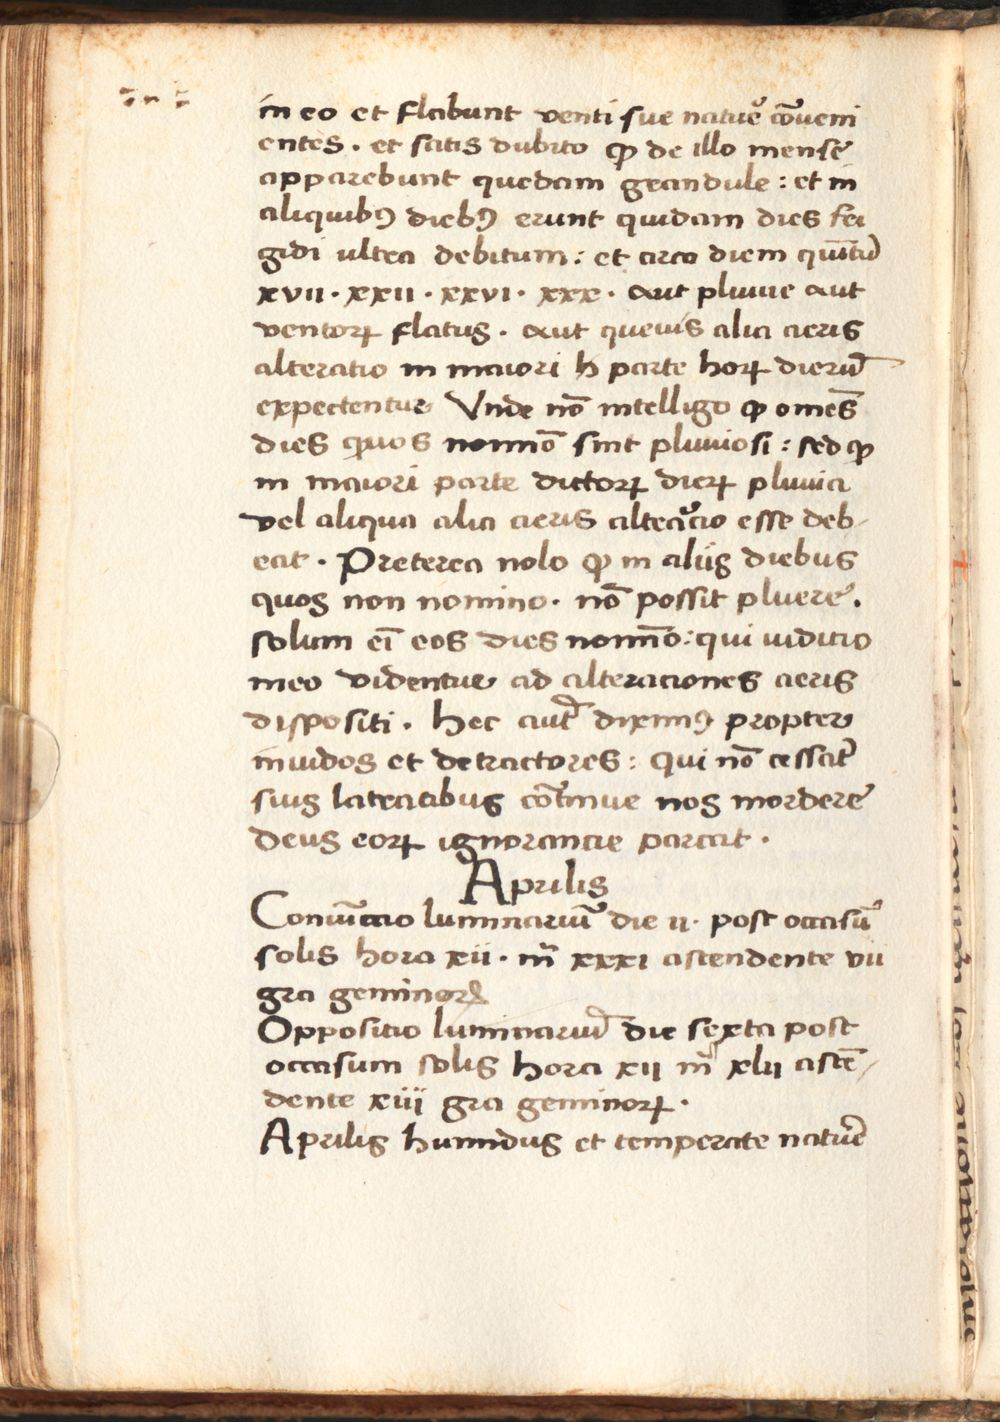 in eo et flabunt venti sue natuē cōueni
entes . et satis dubito ꝙ de illo mense
apparebunt quedam grandule : et in
aliquibꝰ diebꝰ erunt quidam dies fri
gidi ultra debitum : et circa diem quītū
xvii · xxii · xxvi · xxx · aut pluuie aut
ventoꝝ flatus . aut queuis alia aeris
alteratio in maiori h parte hoꝝ dierū
expectentur Vnde nō intelligo ꝙ omēs
dies quos nomīo sint pluuiosi : sed ꝙ
in maiori parte dictoꝝ dieꝝ pluuia
vel aliqua alia aeris alteratio esse deb
eat . Preterea nolo ꝙ in aliis diebus
quos non nomino . nō possit pluere .
solum eī eos dies nomīo : qui iuditio
meo videntur ad alteraciones aeris
dispositi . hec aut̄ diximꝰ propter
inuidos et detractores : qui nō cessāt
suis latratibus cōtinue nos mordere
deus eoꝝ ignorancie parcat .
Aprilis
Coniūctio luminariū die ii . post occasū
solis hora xii . m̄ xxxi ascendente vii
gra geminoꝝ
Oppositio luminariū die sexta post
occasum solis hora xii m̄ xlii ascē
dente xiii gra geminoꝝ .
Aprilis humidus et temperate natuē